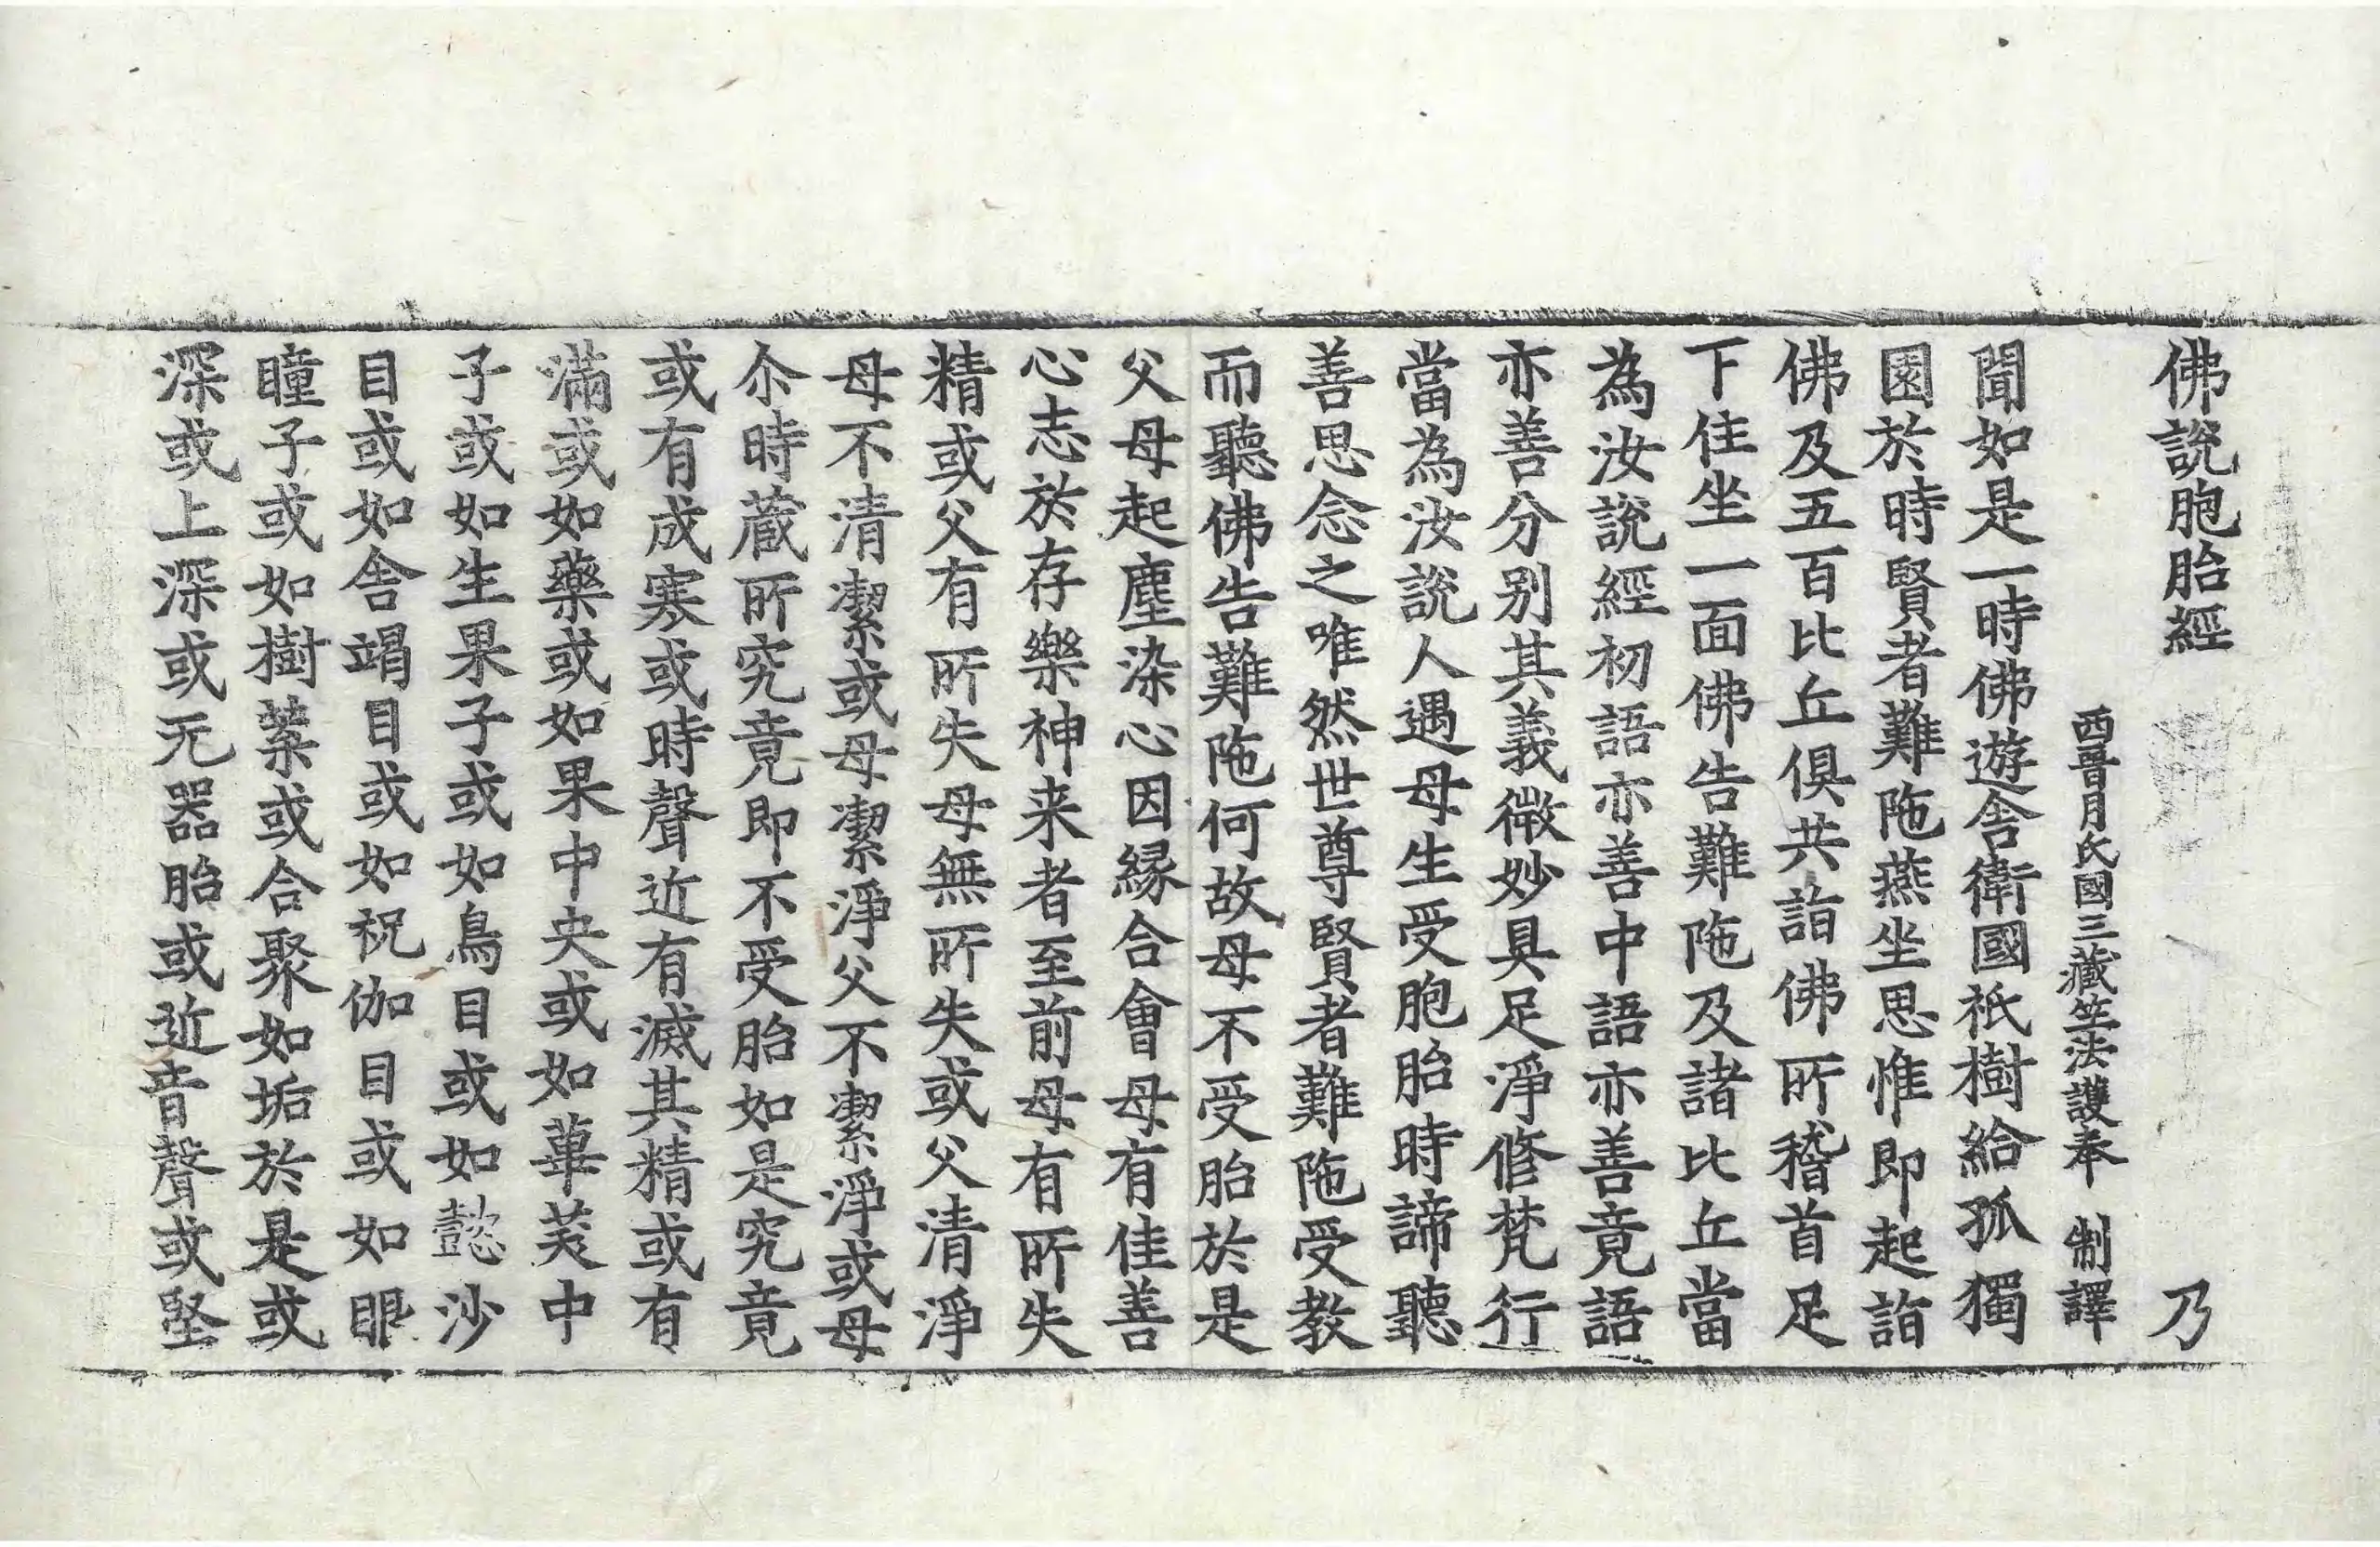 佛說胞胎經 乃
西晉月氏國三藏竺法護奉 制譯
聞如是一時佛遊舎衛國祇樹給孤獨
園於時賢者難陁燕坐思惟即起詣
佛及五百比丘俱共詣佛所稽首足
下住坐一面佛告難陁及諸比丘當
為汝說經初語亦善中語亦善竟語
亦善分別其義微妙具足淨修梵行
當為汝說人遇母生受胞胎時諦聽
善思念之唯然世尊賢者難陁受教
而聽佛告難陁何故母不受胎於是
父母起塵染心因縁合會母有佳善
心志於存樂神来者至前母有所失
精或父有所失母無所失或父清淨
母不清潔或母潔淨父不潔淨或母
尒時蔵所究竟即不受胎如是究竟
或有成寒或時聲近有滅其精或有
滿或如藥或如果中央或如蓽茇中
子或如生果子或如鳥目或如懿沙
目或如舎竭目或如祝伽目或如眼
瞳子或如樹葉或合聚如垢於是或
深或上深或无器胎或近音聲或堅